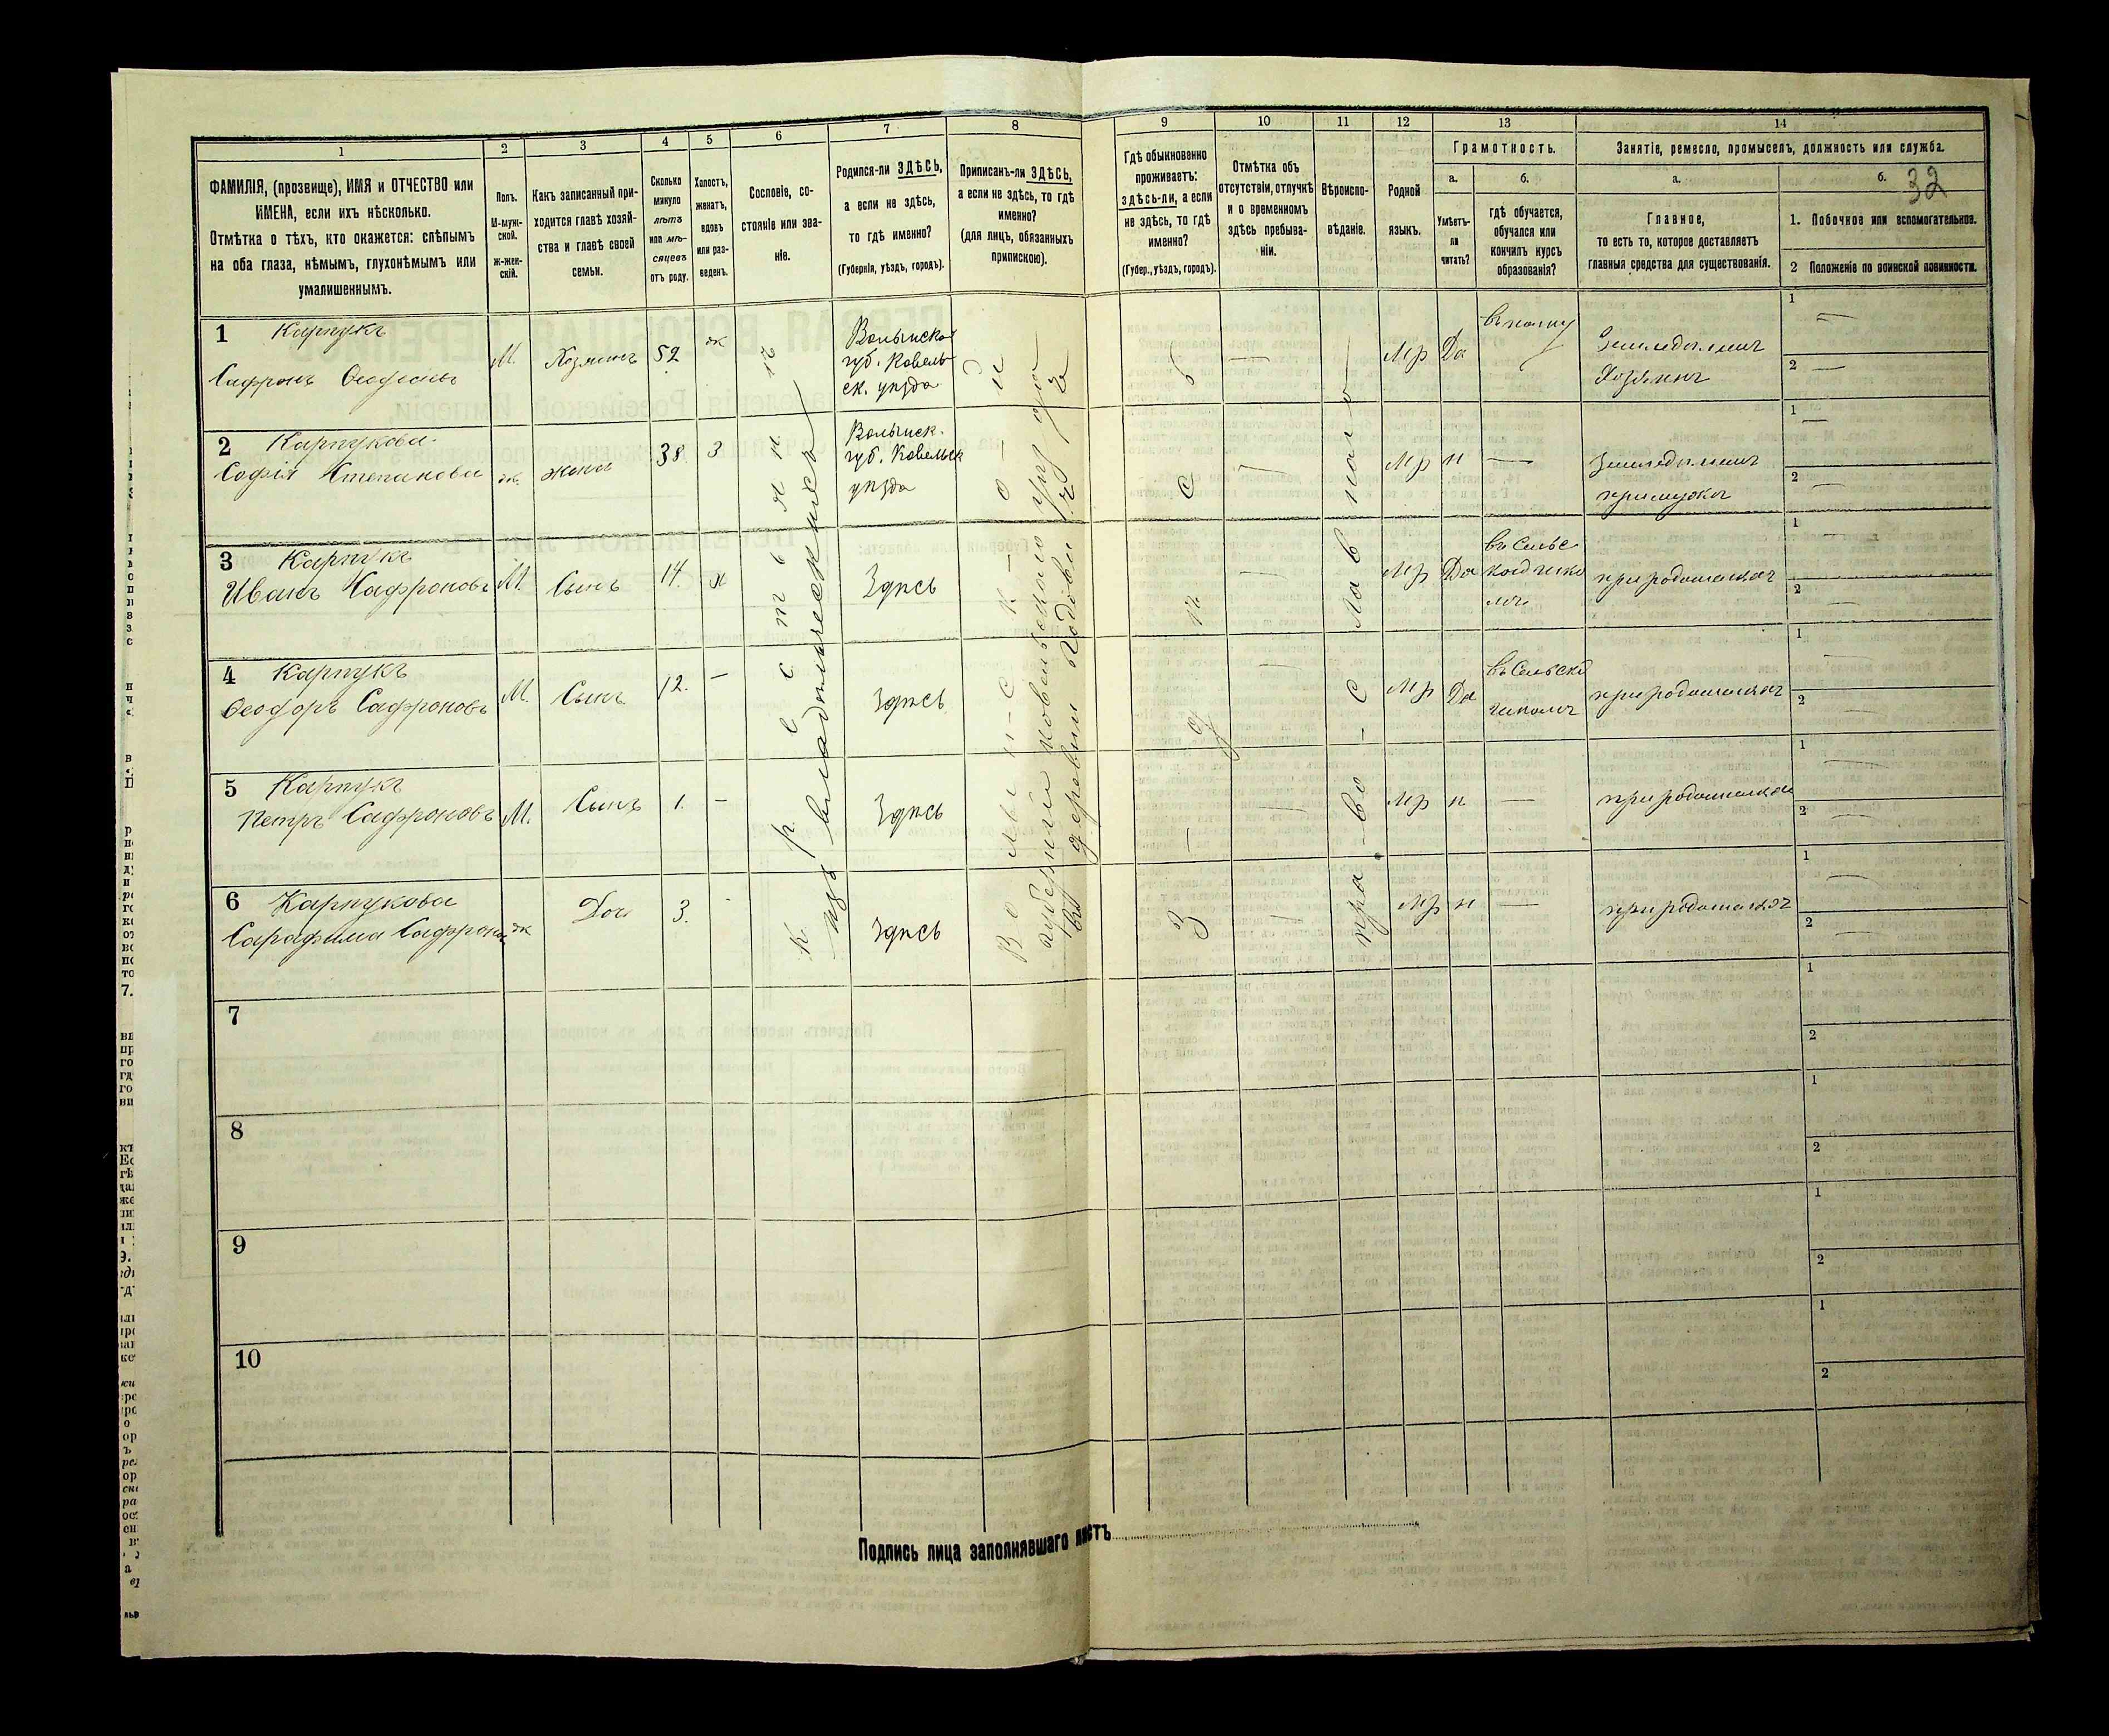 1 2 3 4 5 6 7 8 9 10 11 12 13 14
ФАМИЛІЯ, (прозвище), ИМЯ и ОТЧЕСТВО или
ИМЕНА, если ихъ нѣсколько.
Отмѣтка о тѣхъ, кто окажется: слѣпымъ
на оба глаза, нѣмымъ, глухонѣмымъ или
умалишеннымъ.
Полъ.
М-муж-
ской.
ж-жен-
скій.
Какъ записанный при-
ходится главѣ хозяй-
ства и главѣ своей
семьи.
Сколько
минуло
лѣтъ
или мѣ-
сяцевъ
отъ роду.
Холостъ,
женатъ,
вдовъ
или раз-
веденъ.
Сословіе, со-
стояніе или зва-
ніе.
Родился-ли ЗДѢСЬ,
а если не здѣсь,
то гдѣ именно?
(Губернія, уѣздъ, городъ).
Приписанъ-ли ЗДѢСЬ,
а если не здѣсь, то гдѣ
именно?
(для лицъ, обязанныхъ
припискою).
Гдѣ обыкновенно
проживаетъ:
здѣсь-ли, а если
не здѣсь, то гдѣ
именно?
(Губер., уѣздъ, городъ).
Отмѣтка объ
отсутствіи, отлучкѣ
и о временномъ
здѣсь пребыва-
ніи.
Вѣроиспо-
вѣданіе.
Родной
языкъ.
Грамотность.
а.
Умѣетъ-
ли
читать?
б.
гдѣ обучается,
обучался или
кончилъ курсъ
образованія?
Занятіе, ремесло, промыселъ, должность или служба.
а.
Главное,
то есть то, которое доставляетъ
главныя средства для существованія.
б.
32
1. Побочное или вспомогательное.
2 Положеніе по воинской повинности.
1 Карпукъ
Сафронъ
М. Хозяинъ 52 ж
Волынской
губ. Ковель-
ск. уѣзда
— Мр Да
въ полку
Земледѣлецъ
Хозяинъ
1 —
2 —
2 Карпукова
Софія Степанова
ж. жена 38 З
Волынск.
губ. Ковельск
уѣзда
— Мр н —
Земледѣлецъ
1 —
2 —
3 Карпукъ
Иванъ Сафроновъ
М. Сынъ 14. х Здѣсь
— Мр Да
въ Сельс
кой шко
лѣ
при родителяхъ
1 —
2 —
4 Карпукъ
Ѳеодоръ Сафроновъ
М. Сынъ 12. — Здѣсь
— Мр Да
въ Сельско
школѣ
при родителяхъ
1 —
2 —
5 Карпукъ
Петръ Сафроновъ
М. Сынъ 1. — Здѣсь
— Мр н —
при родителяхъ
1 —
2 —
6 Карпукова
Сарафима Сафронов
ж Доч 3. - Здѣсь
— Мр н —
при родителяхъ
1 —
2 —
крестьянинъ
изъ владѣльческихъ
Волынской
губерніи Ковельскаго уѣзда
Здѣсь
православ
7
1
2
8
1
2
9
1
2
10
1
2
Подпись лица заполнявшаго листъ